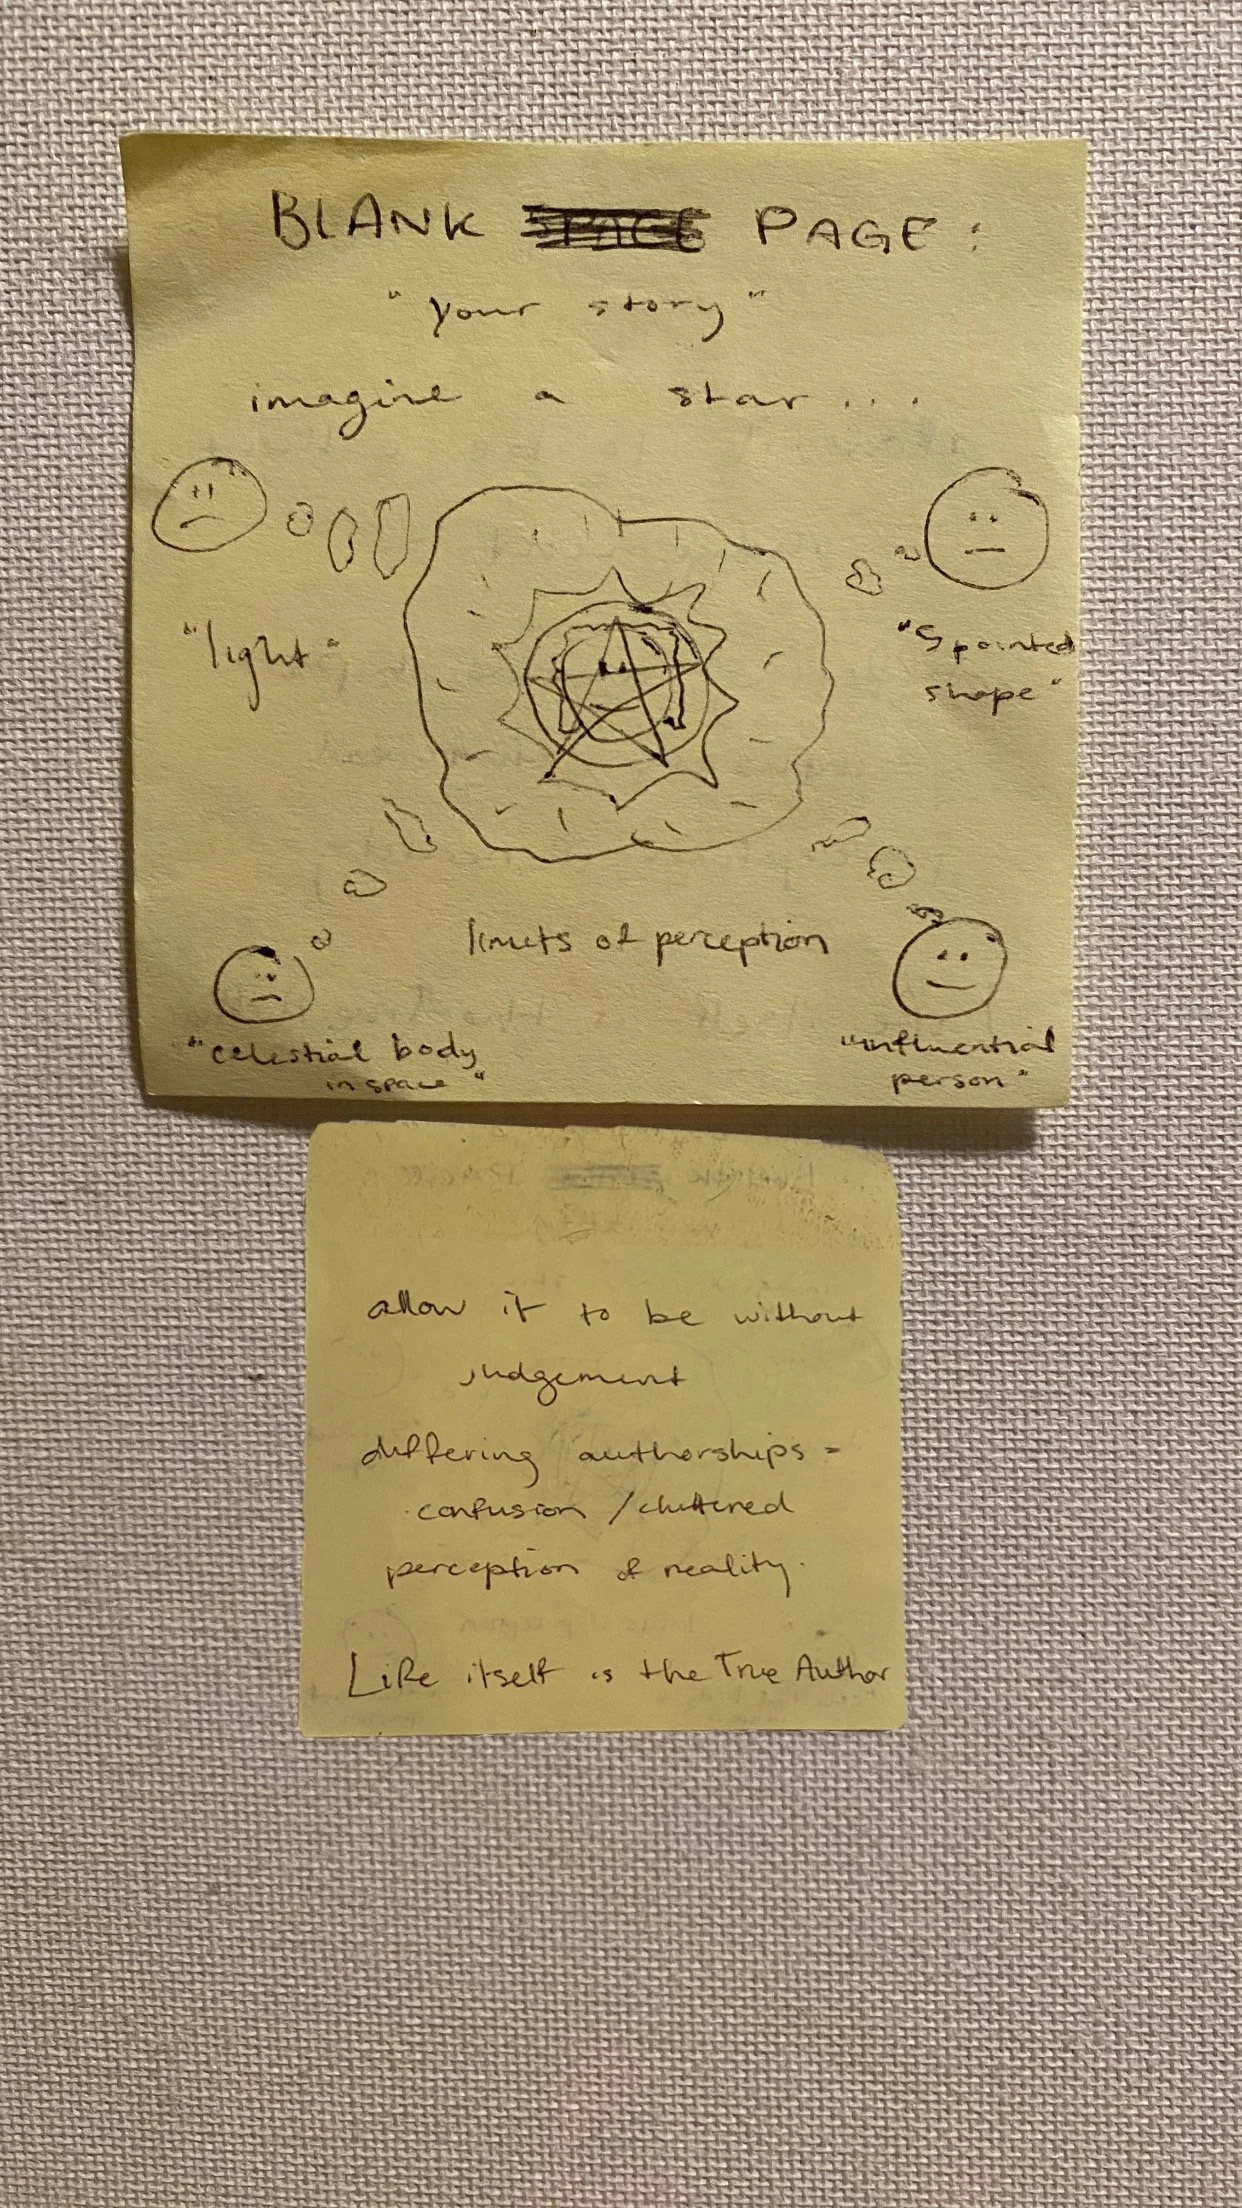 BLANK SPACE PAGE:
"your story"
imagine a star...
"light"
"5 pointed
shape"
limits of perception
"celestial body
in space"
"influential
person"
allow it to be without
judgement
differing authorships =
confusion / cluttered
perception of reality.
Life itself is the True Author